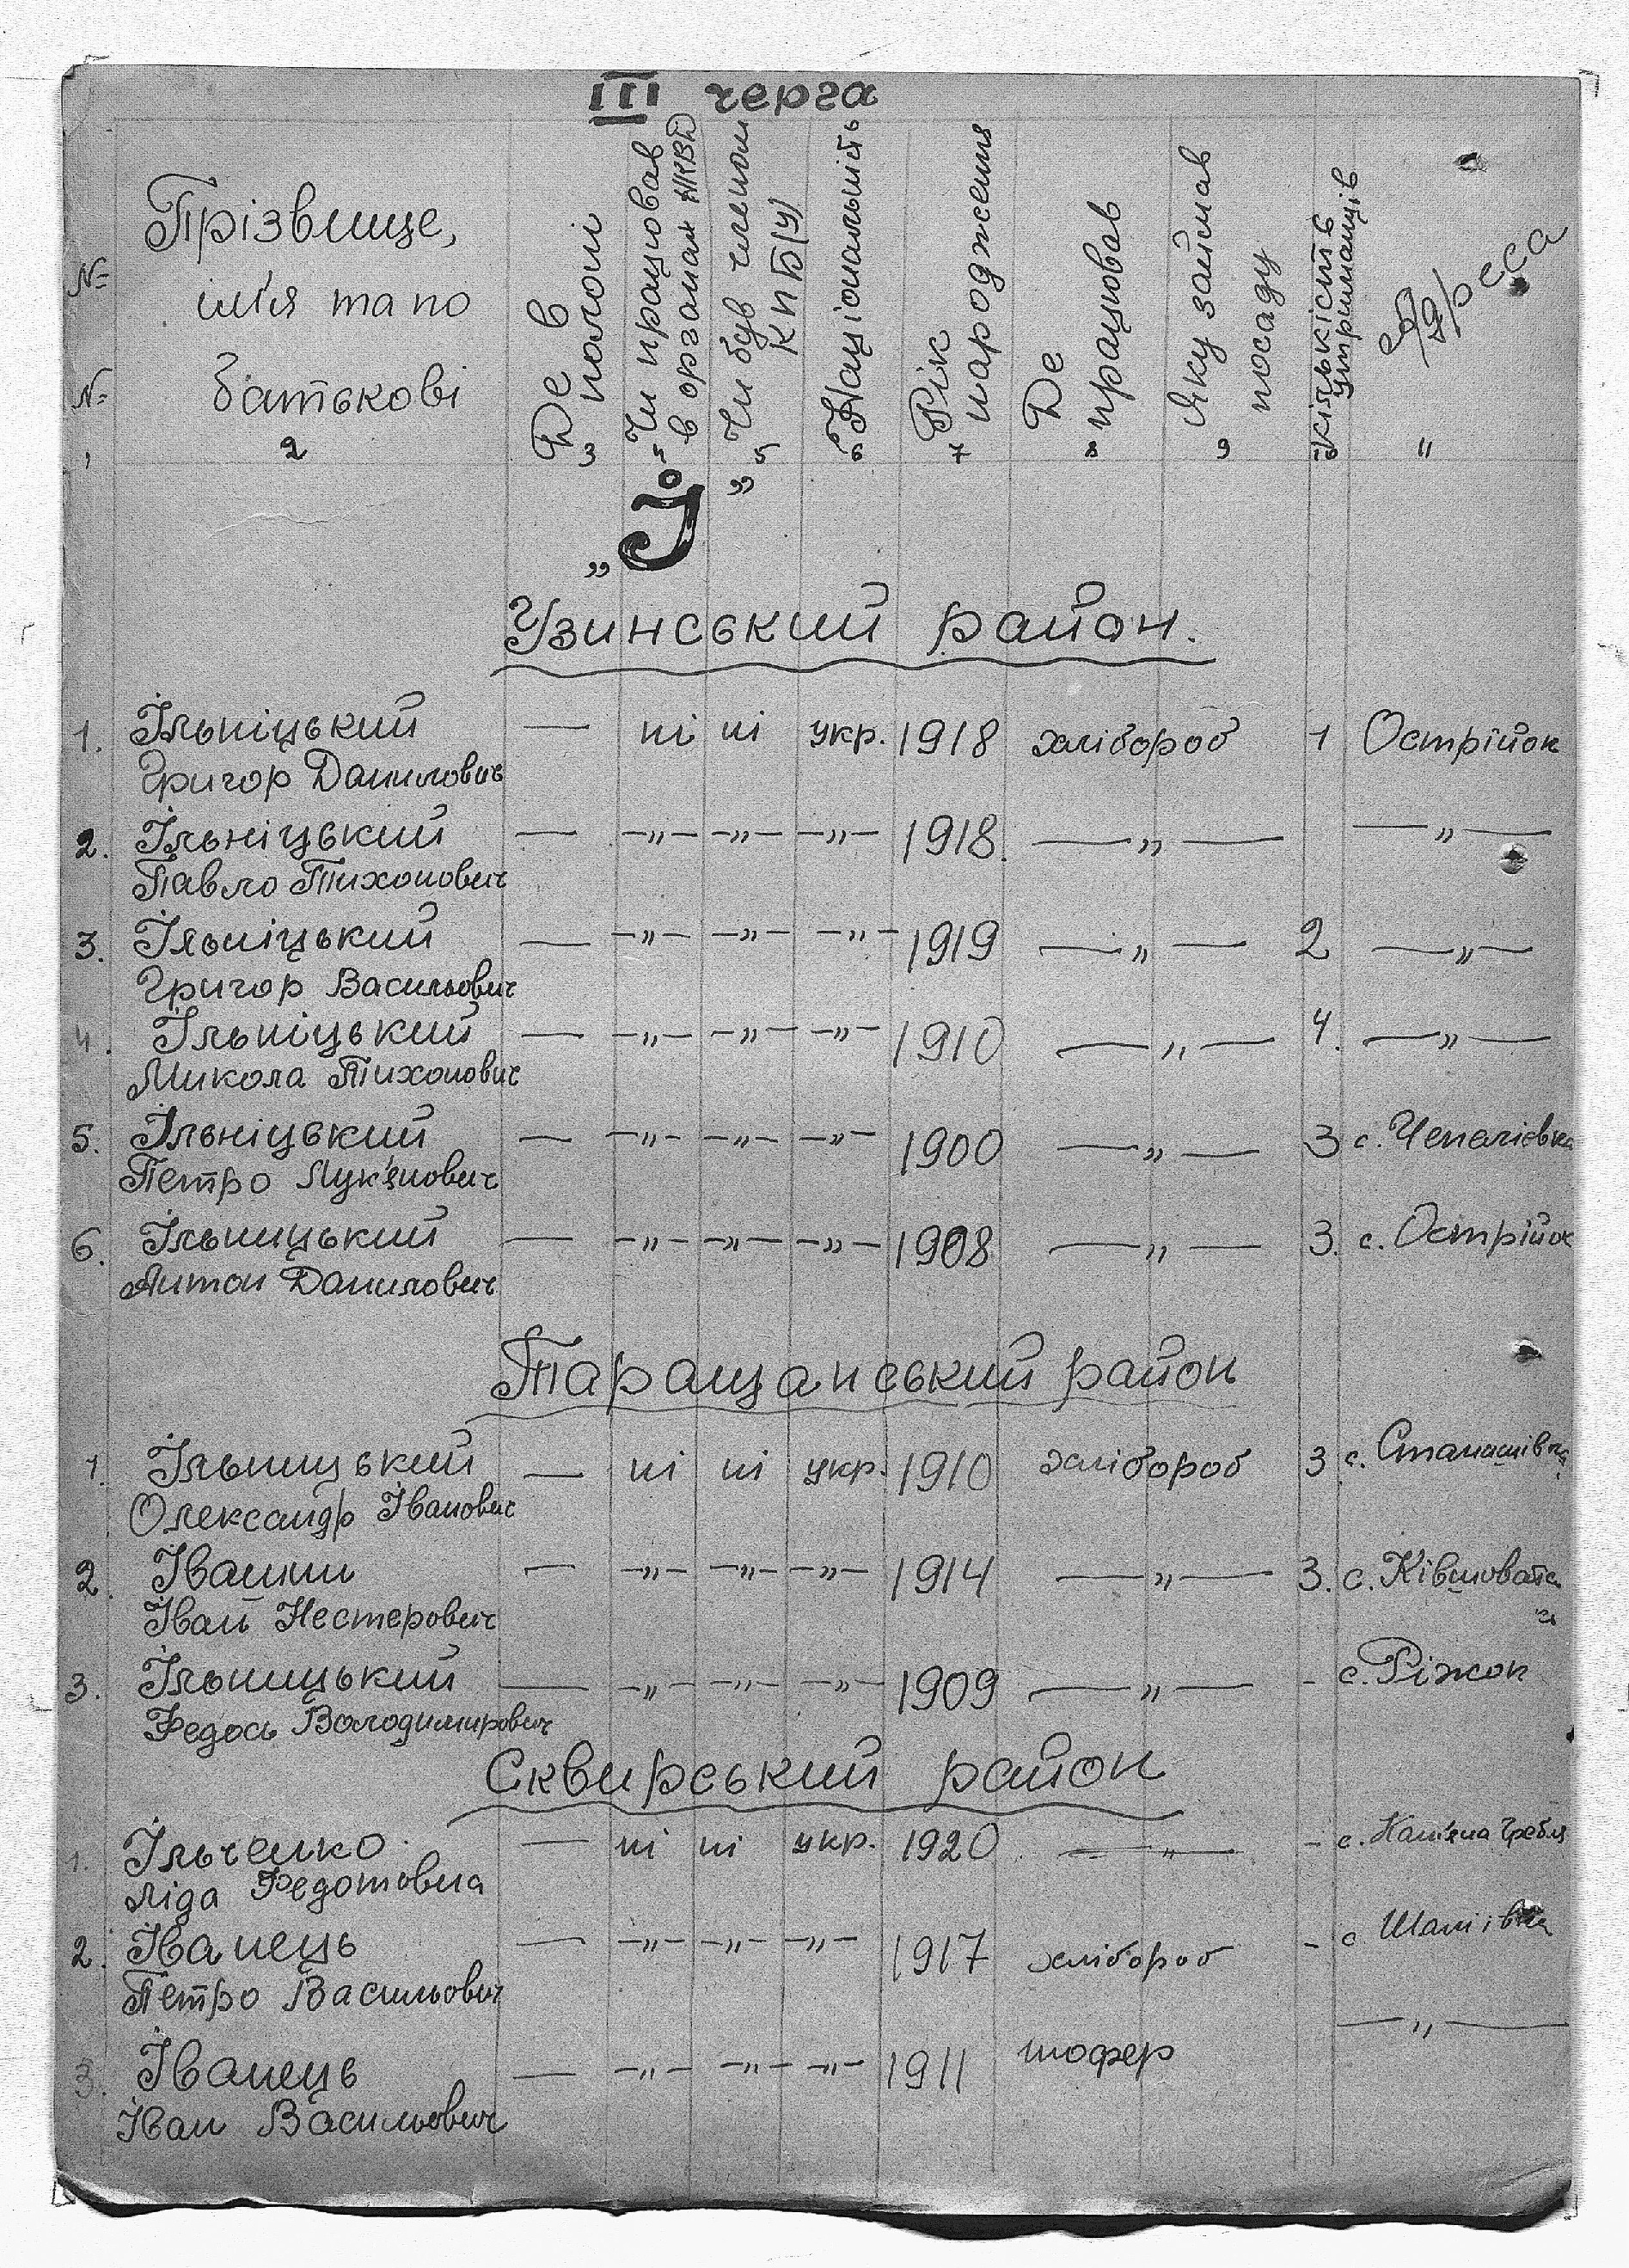 III черга
№ № Прізвище, ім'я та по батькові Де в полоні Чи працював в органах НКВД Чи був членом КПБ(У) Національність Рік народження Де працював Яку займав посаду Кількість утриманців Адреса
1 2 3 5 5 6 7 8 9 10 11
„І"
Узинський район.
1. Ільніцький — ні ні укр. 1918 хлібороб 1 Острійок
Григор Данилович
2. Ільніцький — —„— —„— —„— 1918. —„— —„—
Павло Тихонович
3. Ільніцький — —„— —„— —„— 1919 —„— 2 —„—
Григор Васильович
4. Ільніцький — —„— —„— —„— 1910 —„— 4. —„—
Микола Тихонович
5. Ільніцький — —„— —„— —„— 1900 —„— 3 с. Чепеліевка
Петро Лук'янович
6. Ільницький — —„— —„— —„— 1908 —„— 3. с. Острійок
Антон Данилович
Таращанський район
1. Ільницький — ні ні укр. 1910 хлібороб 3 с. Станишівка
Олександр Іванович
2. Іванин — —„— —„— —„— 1914 —„— 3. с. Ківшовата
Іван Нестерович
3. Ільницький — —„— —„— —„— 1909 —„— - с. Ріжок
Федось Володимирович
Сквирський район
1. Ільченко — ні ні укр. 1920 —„— - с. Кам'яна Гребля
Ліда Федотовна
2. Іванець — —„— —„— —„— 1917 хлібороб - с Шаліївка
Петро Васильович
3. Іванець — —„— —„— —„— 1911 шофер —„—
Іван Васильович